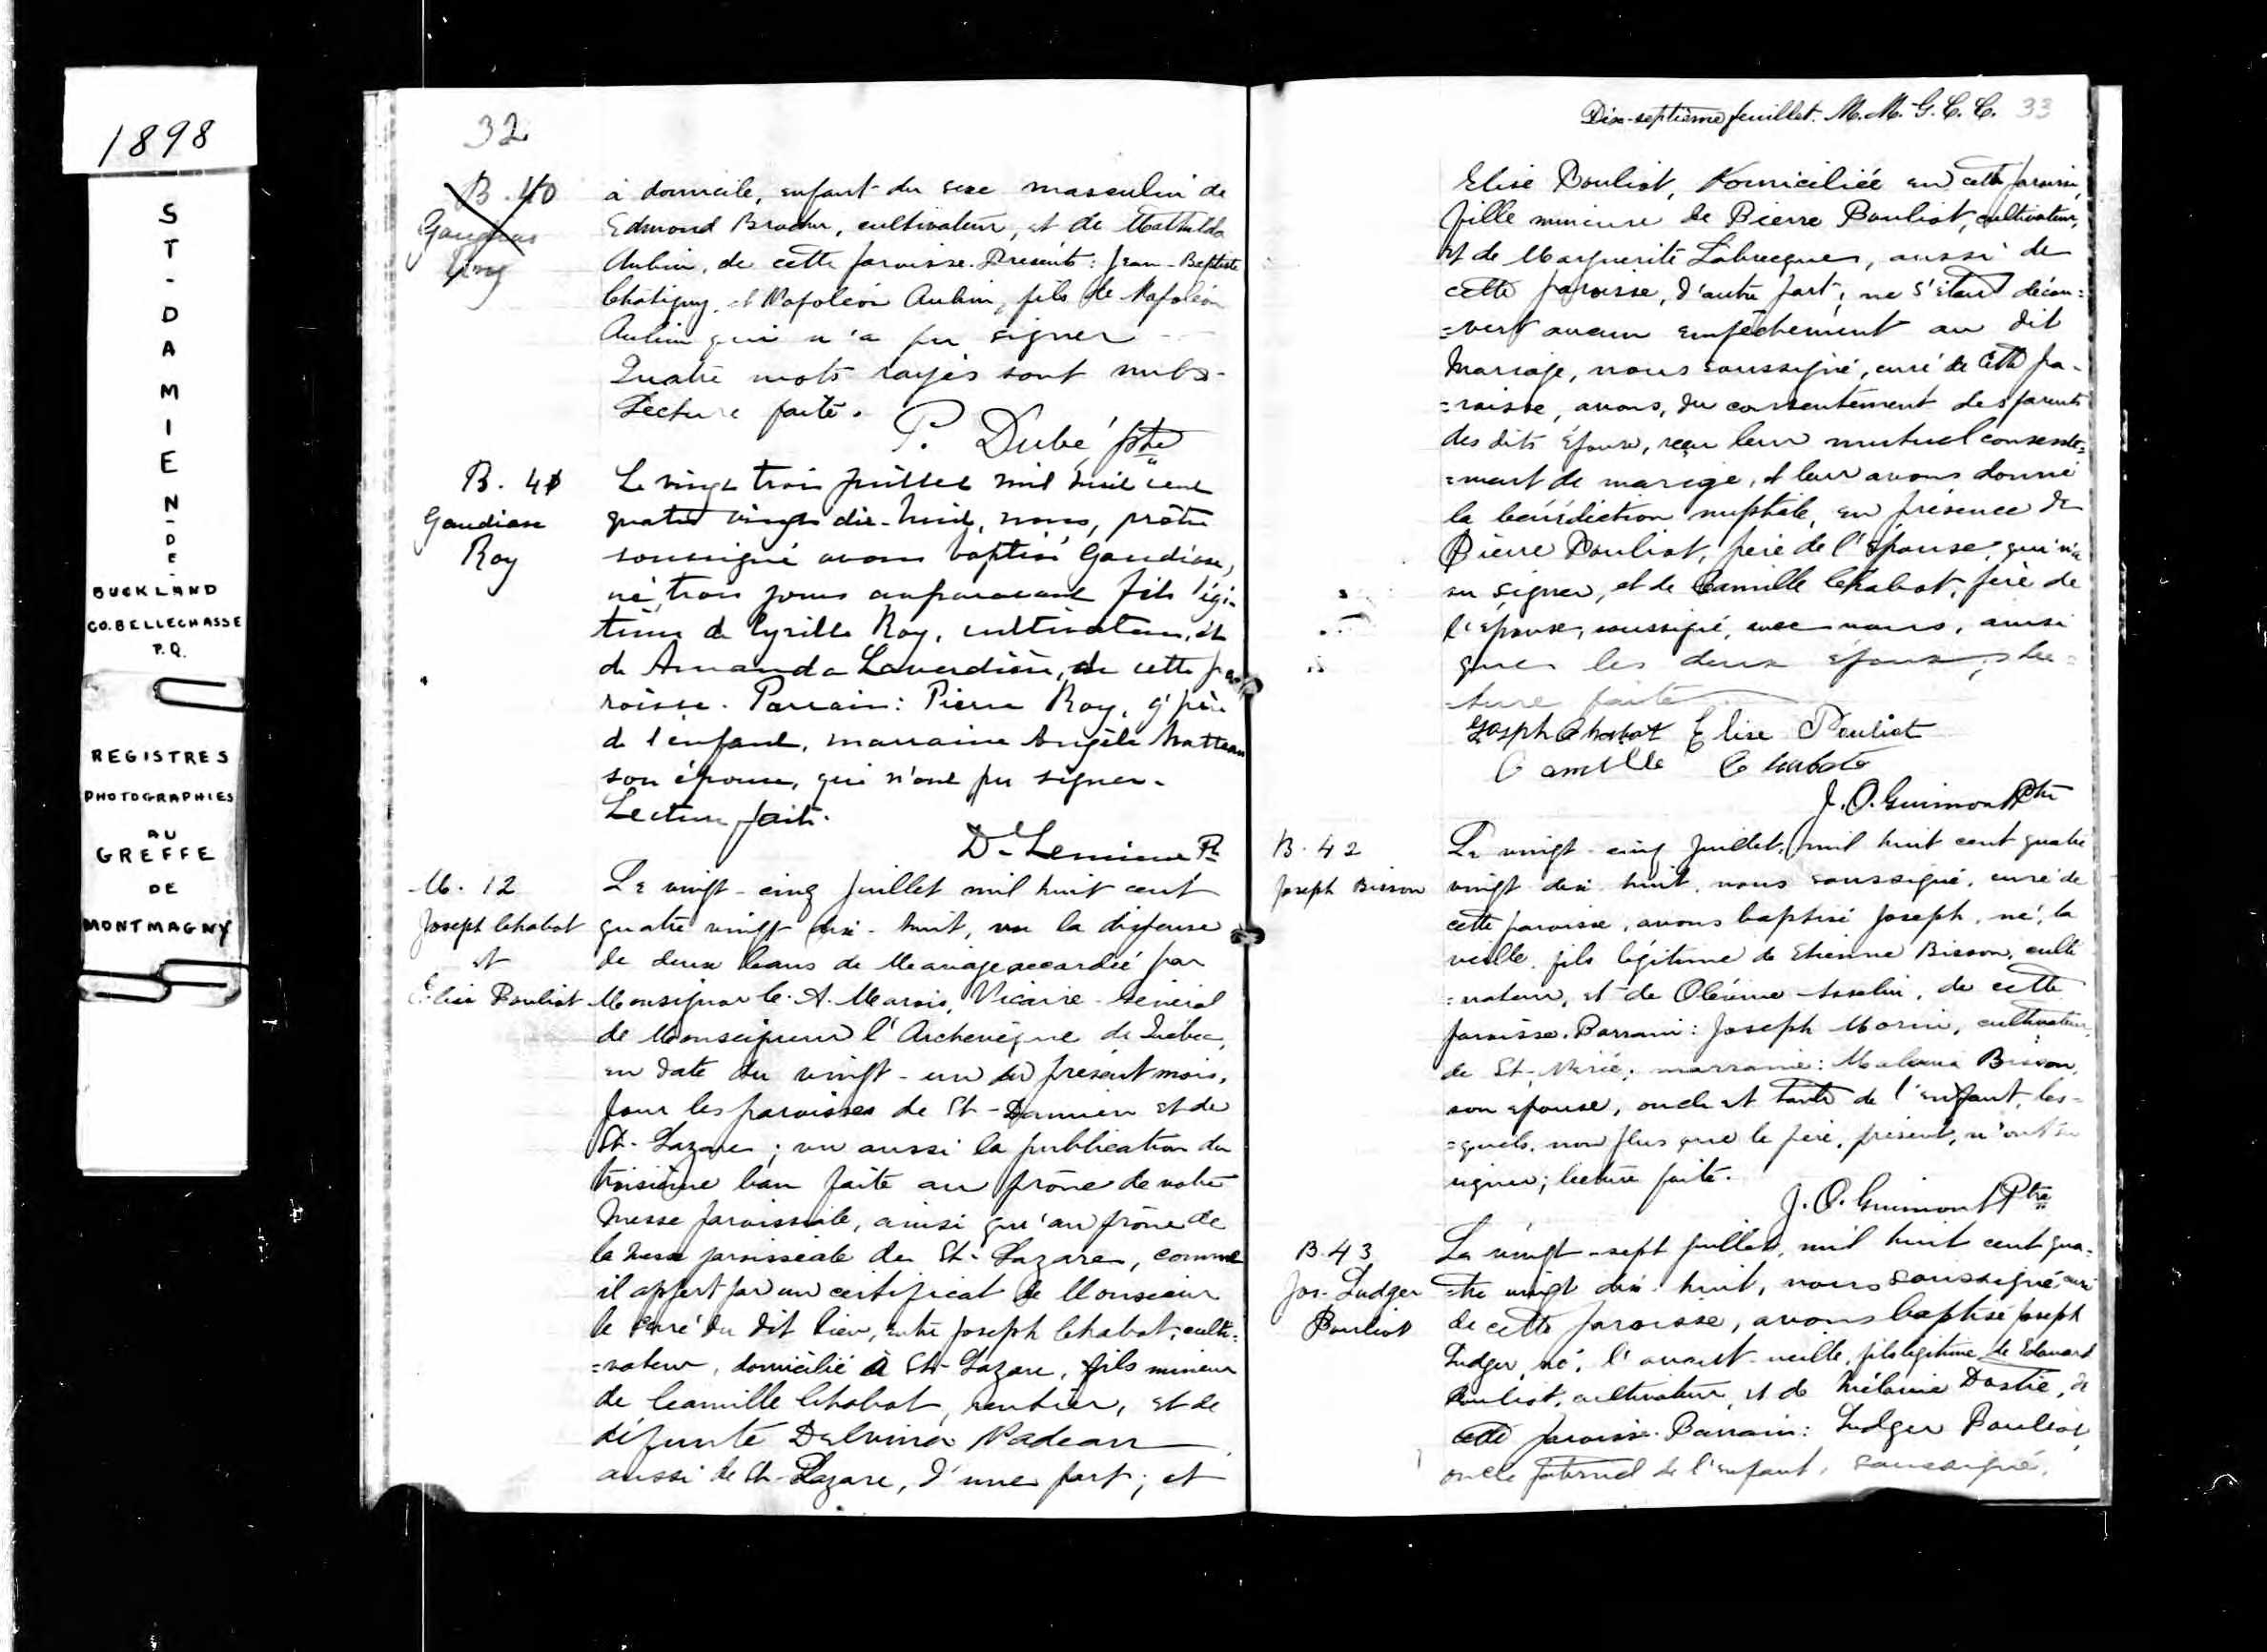 1898
ST-DAMIEN-DE-
BUCKLAND
CO. BELLECHASSE
P.Q.
REGISTRES
PHOTOGRAPHIES
AU
GREFFE
DE
MONTMAGNY
32
B. 40
à domicile, enfant du sexe masculin de
Edmond Brochu, cultivateur, et de Mathilda
Aubin, de cette paroisse. Présents: Jean-Baptiste
Chatigny, et Napoléon Aubin, fils de Napoléon
Aubin qui n'a pu signer
Quatre mots rayés sont nuls-
Lecture faite.
P. Dubé ptre
B. 41
Gaudiose
Roy
Le vingt trois juillet mil huit cent
quatre vingt dix-huit, nous, prêtre
soussigné avons baptisé Gaudiose,
né, trois jours auparavant fils légi-
time de Cyrille Roy, cultivateur, et
de Amanda Laverdière, de cette pa
roisse. Parrain: Pierre Roy, g' père
de l'enfant, marraine Angèle Natteau
son épouse, qui n'ont pu signer.
Lecture faite.
D. Lemieux Pt
M. 12
Joseph Chabot
et
Elise Pouliot
Le vingt-cinq Juillet mil huit cent
quatre vingt dix-huit, vu la dispense
de deux bans de Mariage accordée par
Monsignor C. A. Marois, Vicaire-Général
de Monseigneur l'Archevêque de Québec,
en date du vingt-un du présent mois,
pour les paroisses de St-Damien et de
St-Lazare; vu aussi la publication du
troisième ban faite au prône de notre
Messe paroissiale, ainsi qu'au prône de
la Messe paroissiale de St-Lazare, comme
il appert par un certificat de Monsieur
le Curé du dit lieu, entre Joseph Chabot, culti=
=vateur, domicilié à St-Lazare, fils mineur
de Camille Chabot, rentier, et de
défunte Delvina Nadeau
aussi de St-Lazare, d'une part; et
Dix-septième feuillet. M. M. G. C. C. 33
Elise Pouliot, domiciliée en cette paroisse,
fille mineure de Pierre Pouliot, cultivateur,
et de Marguerite Labrecque, aussi de
cette paroisse, d'autre part; ne s'étant décou=
=vert aucun empêchement au dit
Mariage, nous soussigné, curé de cette pa-
=roisse, avons, du consentement des parents
des dits époux, reçu leur mutuel consente=
=ment de mariage, et leur avons donné
la bénédiction nuptiale, en présence de
Pierre Pouliot, père de l'épouse, qui n'a
su signer, et de Camille Chabot, père de
l'époux, soussigné, avec nous, ainsi
que les deux époux; lec=
=ture faite
Joseph Chabot Elise Pouliot
Camille Chabot
J. O. Guimont Ptre
B. 42
Joseph Bisson
Le vingt-cinq Juillet, mil huit cent quatre
vingt dix huit, nous soussigné, curé de
cette paroisse, avons baptisé Joseph, né, la
veille, fils légitime de Etienne Bisson, culti
=vateur, et de Olérine Asselin, de cette
paroisse. Parrain: Joseph Morin, cultivateur,
de St-Nérée; marraine: Malvina Bisson,
son épouse, oncle et tante de l'enfant, les-
=quels, non plus que le père, présent, n'ont su
signer; lecture faite.
J. O. Guimont Ptre
B. 43
Jos-Ludger
Pouliot
Le vingt-sept juillet, mil huit cent qua-
-tre vingt dix-huit, nous soussigné curé
de cette paroisse, avons baptisé Joseph
Ludger, né, l'avant-veille, fils légitime de Edouard
Pouliot, cultivateur, et de Mélanie Dostie, de
cette paroisse. Parrain: Ludger Pouliot,
oncle paternel de l'enfant, soussigné,